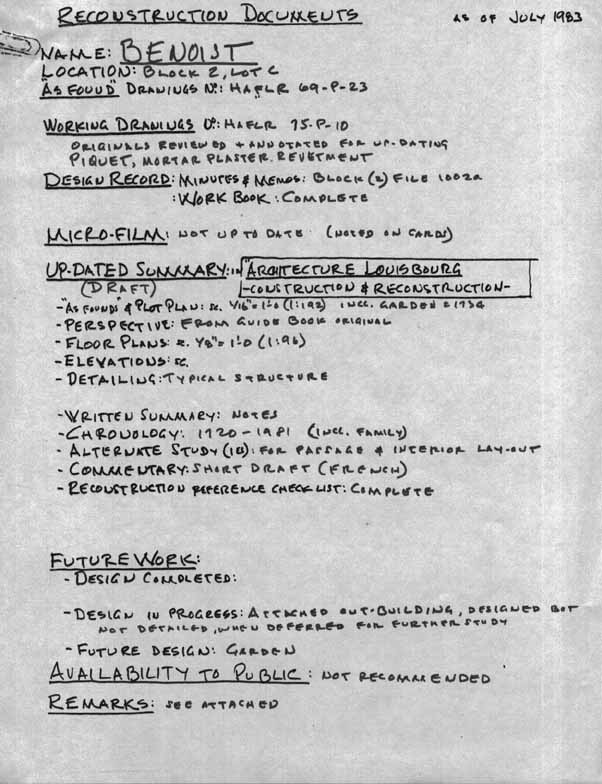 RECONSTRUCTION DOCUMENTS AS OF JULY 1983
NAME: BENOIST
LOCATION: BLOCK 2, LOT C
"AS FOUND" DRAWINGS No: HAFLR 69-P-23
WORKING DRAWINGS No: HAFLR 75-P-10
ORIGINALS REVIEWED & ANNOTATED FOR UP-DATING
PIQUET, MORTAR PLASTER. REVETMENT
DESIGN RECORD: MINUTES & MEMOS: BLOCK (2) FILE 1002a
: WORK BOOK: COMPLETE
MICRO-FILM: NOT UP TO DATE (NOTED ON CARDS)
UP-DATED SUMMARY: IN "ARCHITECTURE LOUISBOURG
(DRAFT) -CONSTRUCTION & RECONSTRUCTION-
- "AS FOUNDS" & PLOT PLAN: SC. 1/16"=1'-0 (1:192) INCL. GARDEN 1734
- PERSPECTIVE: FROM GUIDE BOOK ORIGINAL
- FLOOR PLANS: SC. 1/8"=1'-0 (1:96)
- ELEVATIONS: SC.
- DETAILING: TYPICAL STRUCTURE
- WRITTEN SUMMARY: NOTES
- CHRONOLOGY: 1720-1981 (INCL. FAMILY)
- ALTERNATE STUDY (1B): FOR PASSAGE & INTERIOR LAY-OUT
- COMMENTARY: SHORT DRAFT (FRENCH)
- RECONSTRUCTION REFERENCE CHECK LIST: COMPLETE
FUTURE WORK:
- DESIGN COMPLETED:
- DESIGN IN PROGRESS: ATTACHED OUT-BUILDING, DESIGNED BUT
NOT DETAILED, WHEN DEFERRED FOR FURTHER STUDY
- FUTURE DESIGN: GARDEN
AVAILABILITY TO PUBLIC: NOT RECOMMENDED
REMARKS: SEE ATTACHED